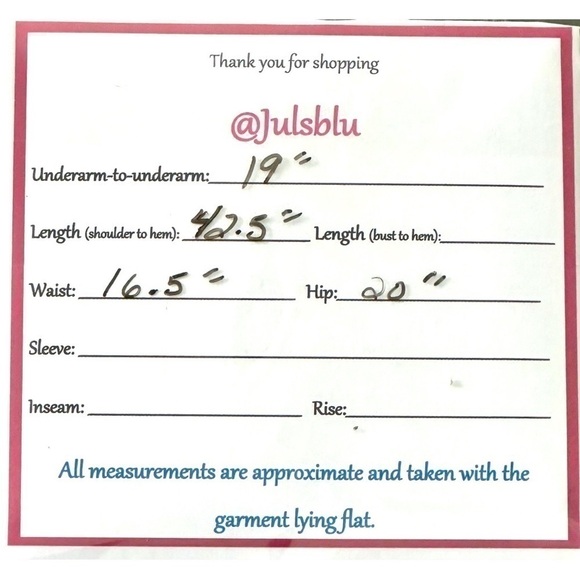 Thank you for shopping
@Julsblu
Underarm-to-underarm: 19"
Length (shoulder to hem): 42.5" Length (bust to hem):
Waist: 16.5" Hip: 20"
Sleeve:
Inseam: Rise:
All measurements are approximate and taken with the
garment lying flat.